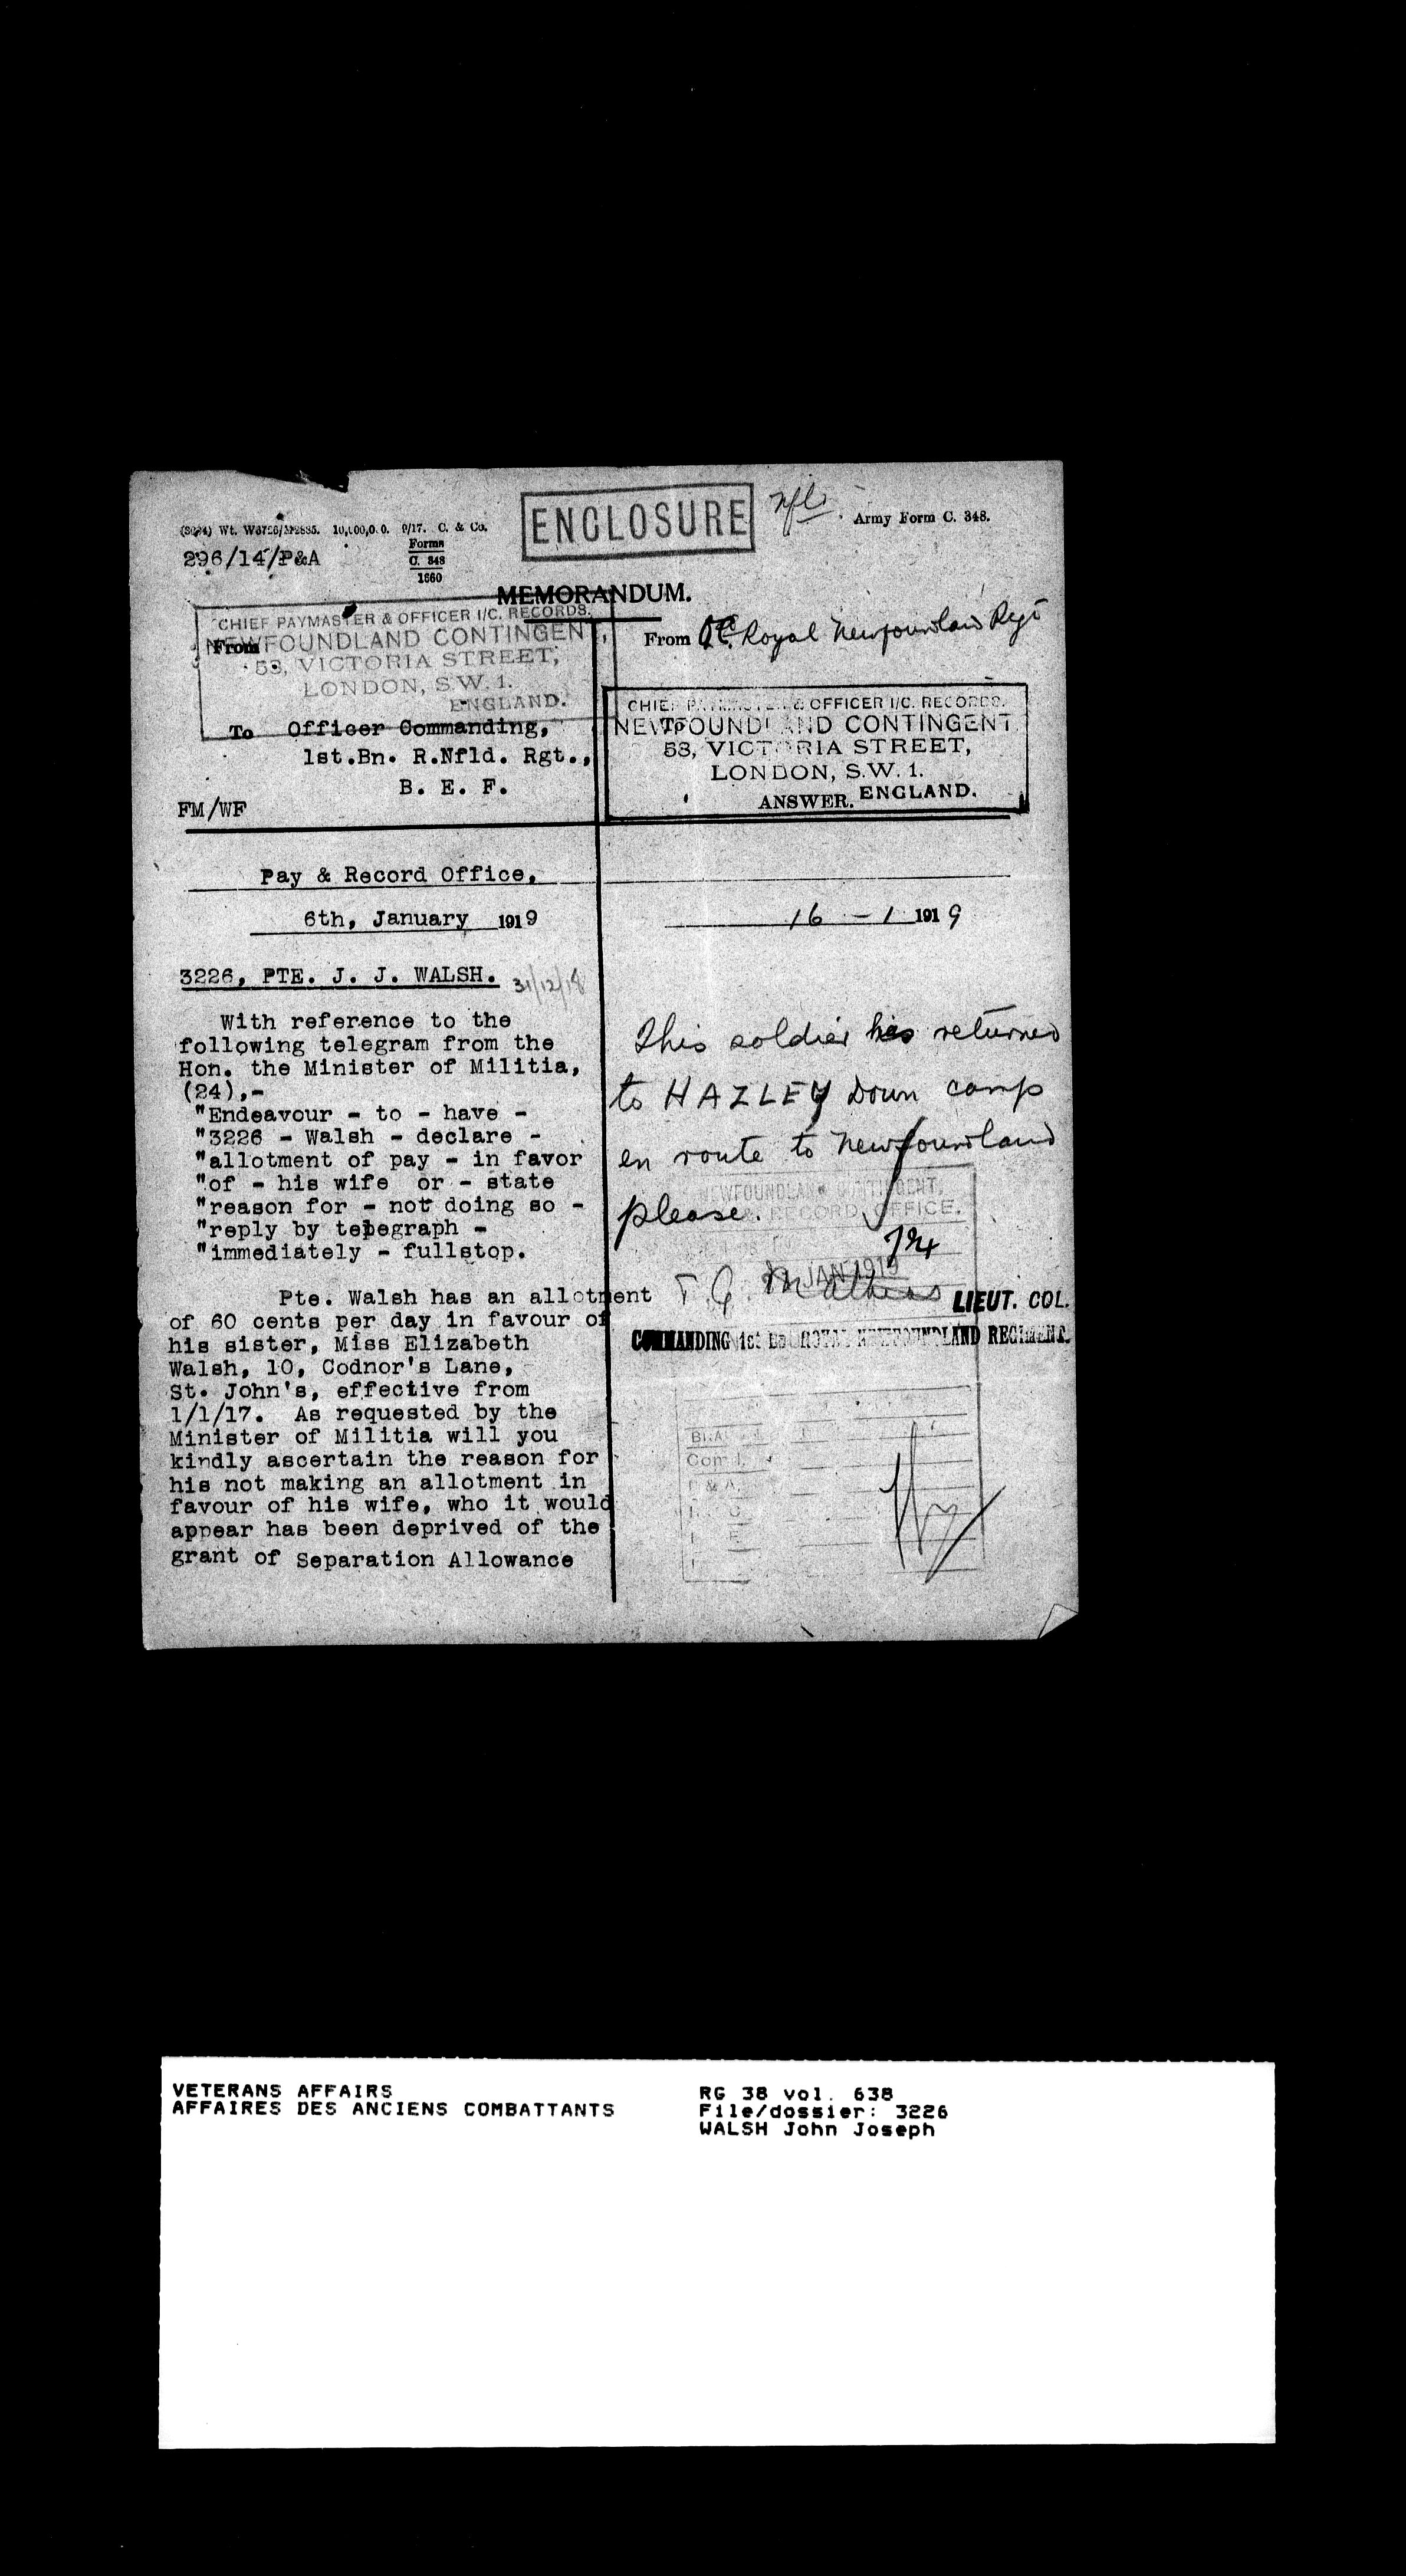 ENCLOSURE
Army Form C. 348.
10,000,0.0. 9/17. C. & Co.
296/14/P&A
Forms
C. 348
1660
MEMORANDUM.
CHIEF PAYMASTER & OFFICER I/C. RECORDS.
NEWFOUNDLAND CONTINGENT,
53, VICTORIA STREET,
LONDON, S.W. 1.
ENGLAND.
From
To Officer Commanding,
1st.Bn. R.Nfld. Rgt.,
B. E. F.
FM/WF
Pay & Record Office,
6th, January 1919
3226, PTE. J. J. WALSH. 31/12/18
With reference to the
following telegram from the
Hon. the Minister of Militia,
(24),-
"Endeavour - to - have -
"3226 - Walsh - declare -
"allotment of pay - in favor
"of - his wife or - state
"reason for - not doing so -
"reply by telegraph -
"immediately - fullstop.
Pte. Walsh has an allotment
of 60 cents per day in favour of
his sister, Miss Elizabeth
Walsh, 10, Codnor's Lane,
St. John's, effective from
1/1/17. As requested by the
Minister of Militia will you
kindly ascertain the reason for
his not making an allotment in
favour of his wife, who it would
appear has been deprived of the
grant of Separation Allowance
From O.C. Royal Newfoundland Regt
To
CHIEF PAYMASTER & OFFICER I/C. RECORDS.
NEWFOUNDLAND CONTINGENT
53, VICTORIA STREET,
LONDON, S.W. 1.
ENGLAND.
ANSWER.
16 - 1 1919
This soldier has returned
to HAZLEY Down camp
en route to Newfoundland
please.
NEWFOUNDLAND CONTINGENT,
& RECORD OFFICE.
JAN 1919
T. G. Mathias LIEUT. COL.
COMMANDING 1st Bn ROYAL NEWFOUNDLAND REGIMENT.
VETERANS AFFAIRS
AFFAIRES DES ANCIENS COMBATTANTS
RG 38 vol. 638
File/dossier: 3226
WALSH John Joseph